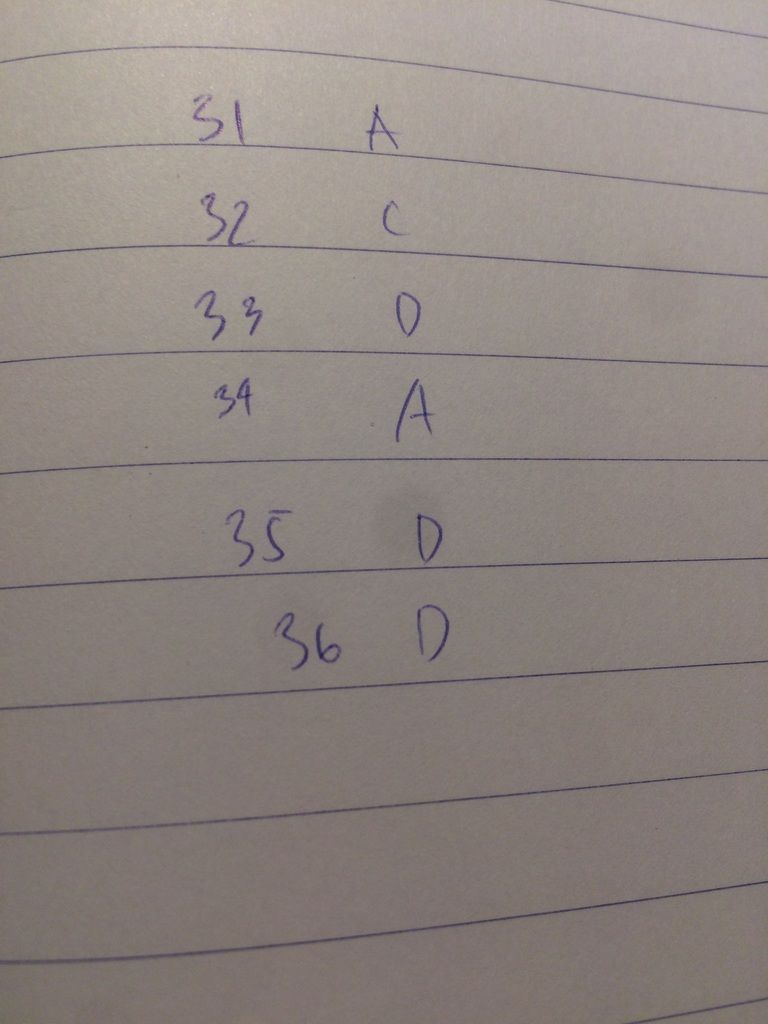 31 A
32 C
33 D
34 A
35 D
36 D